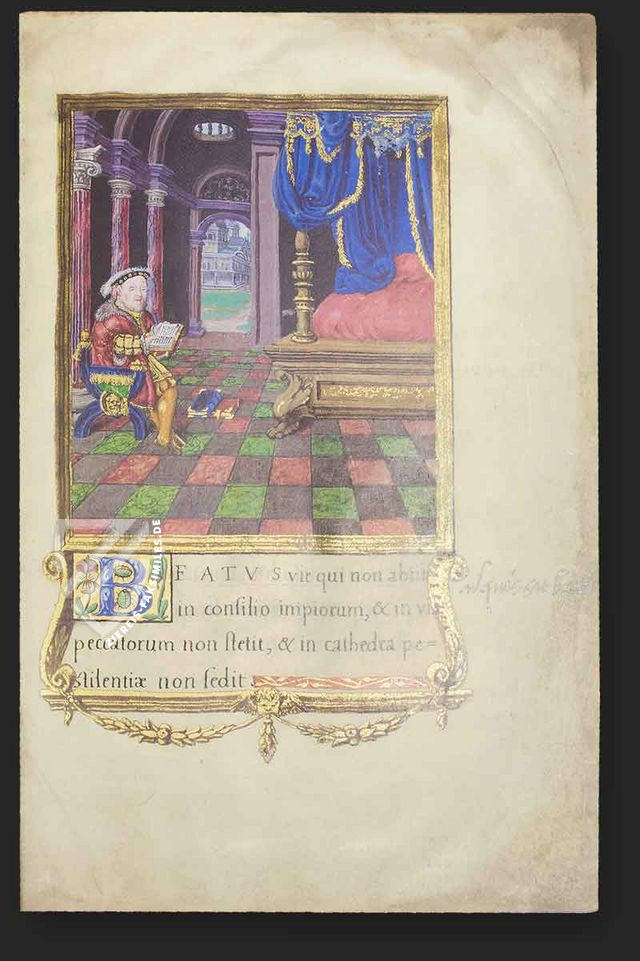 BEATVS vir qui non abiit
in conſilio impiorum, & in via
peccatorum non ſtetit, & in cathedra pe=
ſtilentiæ non ſedit.